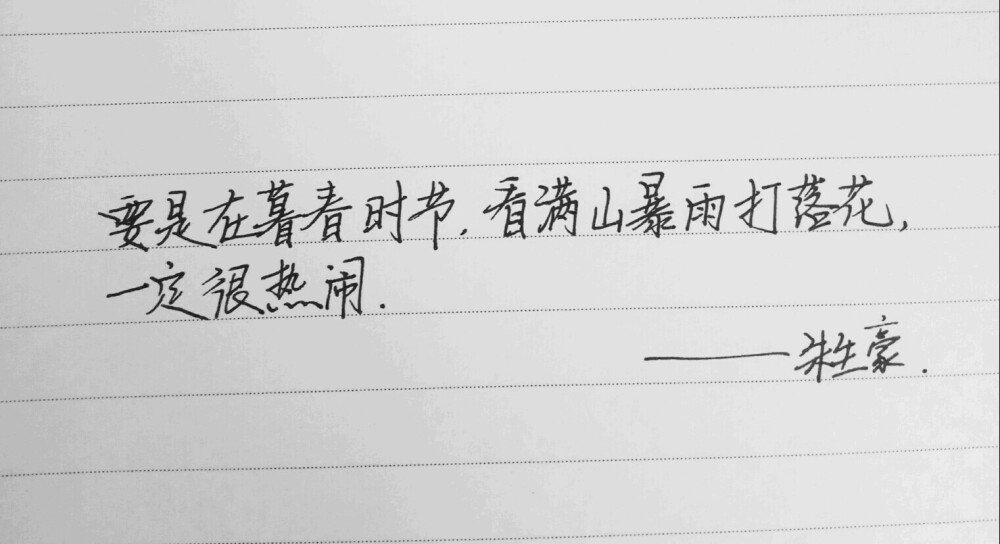 要是在暮春时节.看满山暴雨打落花,
一定很热闹.
——朱生豪.